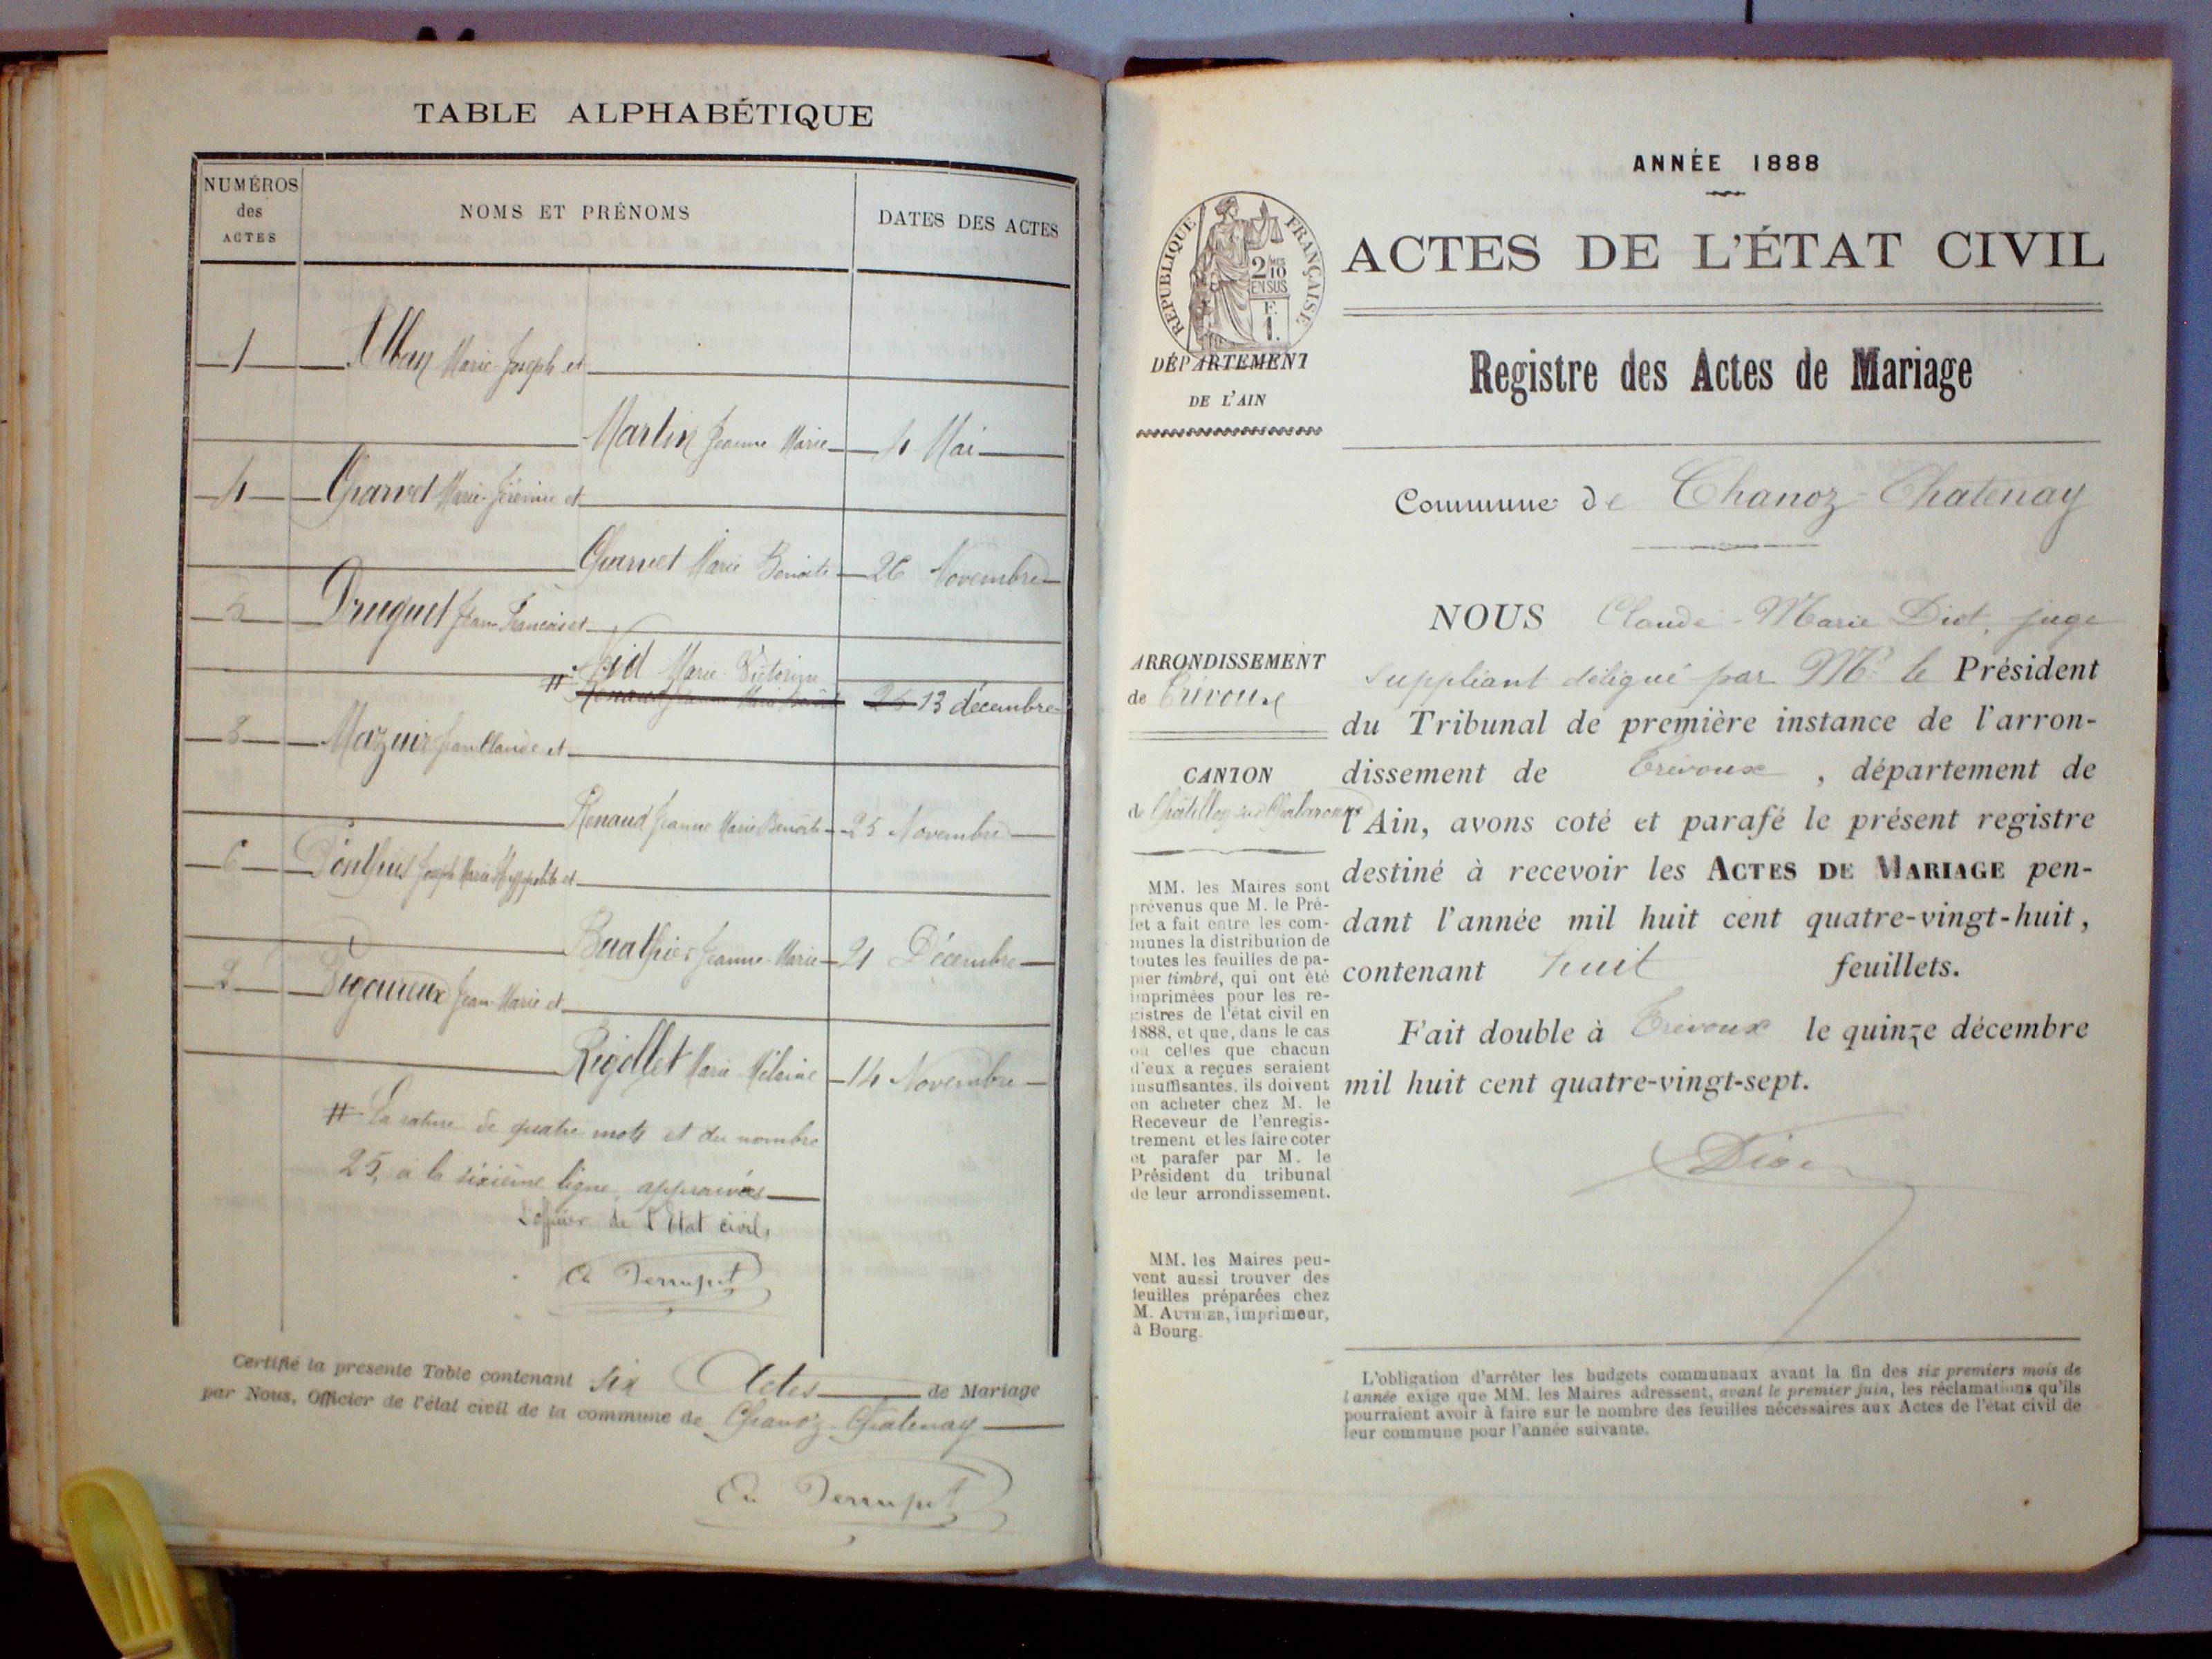 TABLE ALPHABÉTIQUE
NUMÉROS
des
ACTES
NOMS ET PRÉNOMS
DATES DES ACTES
1 Alban Marie Joseph et
Martin Jeanne Marie 4 Mai
4 Charvet Marie et
Charvet Marie Benoite 26 Novembre
5 Druguet Jean François et
Nid Marie Victorine
# Renaud Jeanne Marie Benoite 25 13 décembre
3 Mazuir Jean Claude et
Renaud Jeanne Marie Benoite 25 Novembre
6 Ponthus Joseph Marie Hyppolite et
Buathier Jeanne Marie 21 Décembre
2 Jean Marie et
Rigollet Marie Mélaine 14 Novembre
# La rature de quatre mots et du nombre
25, à la sixième ligne, approuvées
L'officier de l'Etat civil,
Certifié la presente Table contenant six Actes de Mariage
par Nous, Officier de l'état civil de la commune de Chanoz-Chatenay
ANNÉE 1888
RÉPUBLIQUE FRANÇAISE
2 MES
10
EN SUS
F.
1.
ACTES DE L'ÉTAT CIVIL
DÉPARTEMENT
DE L'AIN
Registre des Actes de Mariage
Commune de Chanoz-Chatenay
NOUS Claude-Marie Diot, juge
suppléant délégué par Mr le Président
du Tribunal de première instance de l'arron-
dissement de Trévoux, département de
l'Ain, avons coté et parafé le présent registre
destiné à recevoir les ACTES DE MARIAGE pen-
dant l'année mil huit cent quatre-vingt-huit,
contenant huit feuillets.
Fait double à Trévoux le quinze décembre
mil huit cent quatre-vingt-sept.
Diot
ARRONDISSEMENT
de Trévoux
CANTON
de Châtillon sur Chalaronne
MM. les Maires sont
prévenus que M. le Pré-
fet a fait entre les com-
munes la distribution de
toutes les feuilles de pa-
pier timbré, qui ont été
imprimées pour les re-
gistres de l'état civil en
1888, et que, dans le cas
où celles que chacun
d'eux a reçues seraient
insuffisantes, ils doivent
en acheter chez M. le
Receveur de l'enregis-
trement et les faire coter
et parafer par M. le
Président du tribunal
de leur arrondissement.
MM. les Maires peu-
vent aussi trouver des
feuilles préparées chez
M. AUTHIER, imprimeur,
à Bourg.
L'obligation d'arrêter les budgets communaux avant la fin des six premiers mois de
l'année exige que MM. les Maires adressent, avant le premier juin, les réclamations qu'ils
pourraient avoir à faire sur le nombre des feuilles nécessaires aux Actes de l'état civil de
leur commune pour l'année suivante.